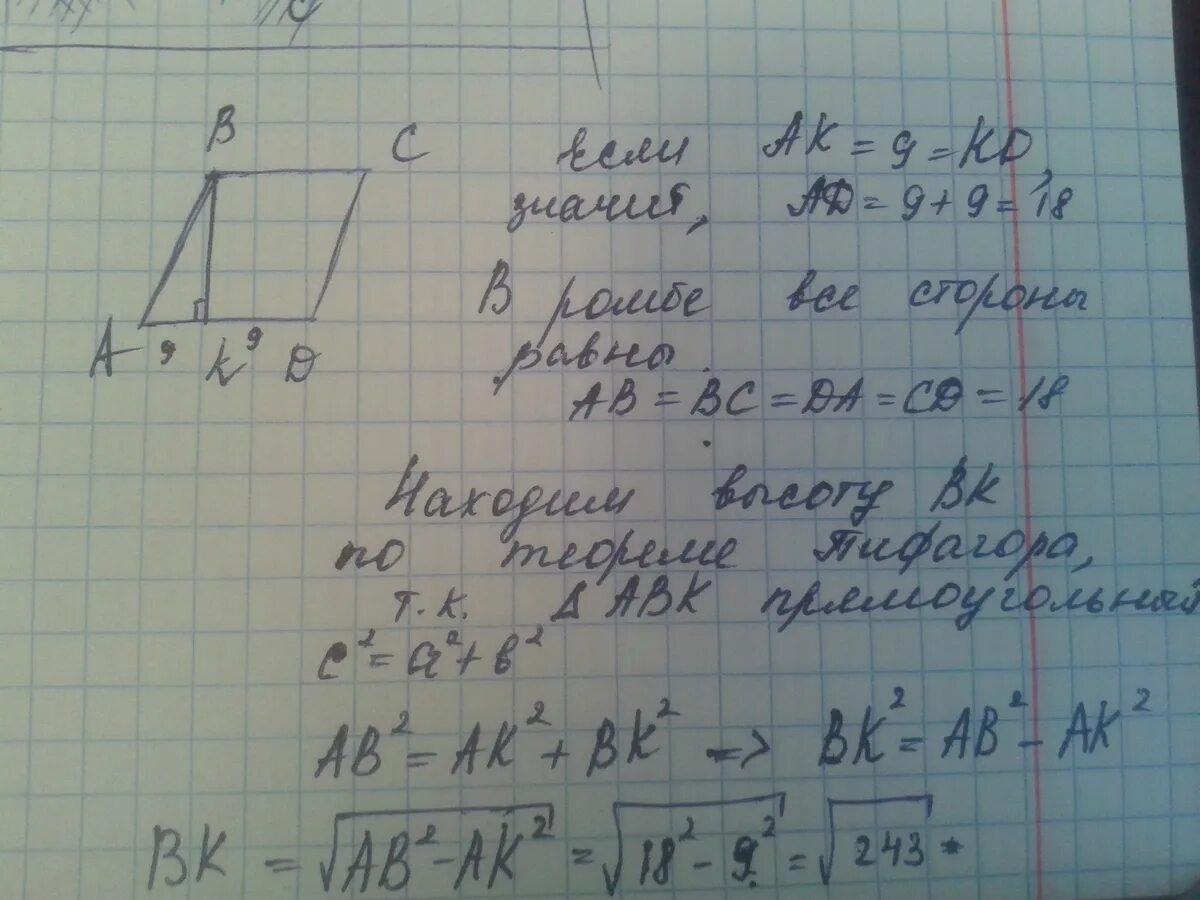 B
C
A 9 K 9 D
Если AK = 9 = KD,
значит, AD = 9 + 9 = 18
В ромбе все стороны
равны.
AB = BC = DA = CD = 18
Находим высоту BK
по теореме Пифагора,
т.к. Δ ABK прямоугольный
c² = a² + b²
AB² = AK² + BK² => BK² = AB² - AK²
BK = √AB² - AK² = √18² - 9² = √243